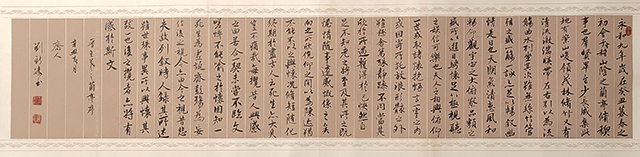 永和九年歲在癸丑暮春之
初會於會稽山陰之蘭亭脩禊
事也群賢畢至少長咸集此
地有崇山峻領茂林脩竹又有
清流激湍映帶左右引以為流
觴曲水列坐其次雖無絲竹管
弦之盛一觴一詠亦足以暢敘幽
情是日也天朗氣清惠風和
暢仰觀宇宙之大俯察品類之
盛所以遊目騁懷足以極視聽
之娛信可樂也夫人之相與俯仰
一世或取諸懷抱悟言一室之內
或因寄所託放浪形骸之外
雖趣舍萬殊靜躁不同當其
欣於所遇暫得於己快然自
足不知老之將至及其所之既
倦情隨事遷感慨係之矣
向之所欣俛仰之間以為陳迹猶
不能不以之興懷況脩短隨化
終期於盡古人云死生亦大矣
豈不痛哉每攬昔人興感
之由若合一契未嘗不臨文
嗟悼不能喻之於懷固知一
死生為虛誕齊彭殤為妄
作後之視今亦由今之視昔悲
夫故列敘時人錄其所述
雖世殊事異所以興懷其
致一也後之攬者亦將有
感於斯文
之蘭亭序